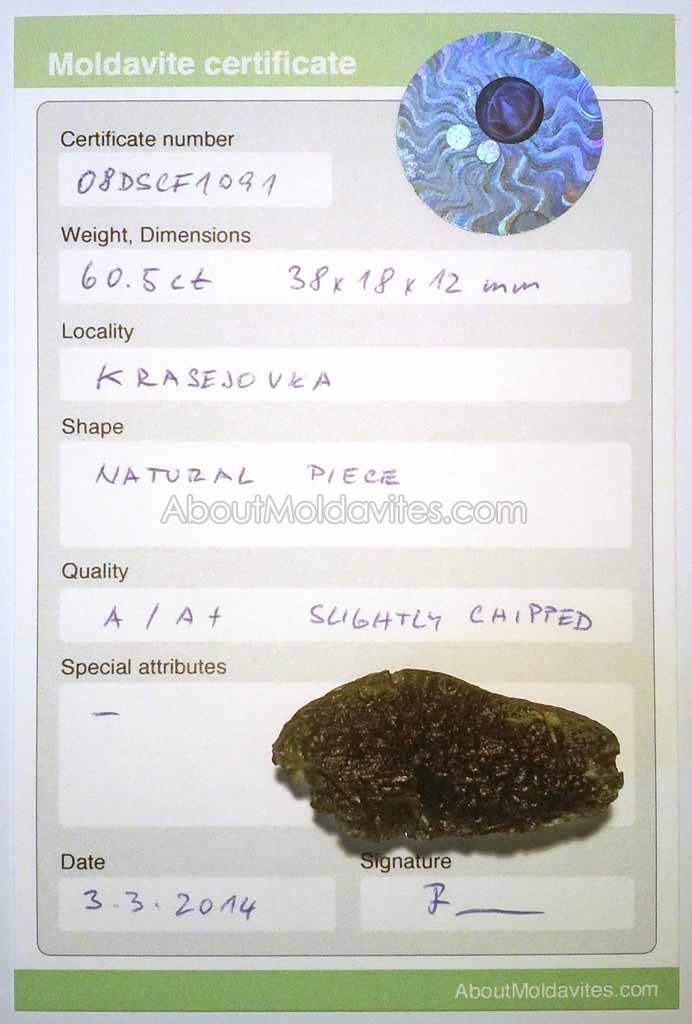 Moldavite certificate
Certificate number
08DSCF1091
Weight, Dimensions
60.5ct 38x18x12 mm
Locality
KRASEJOVKA
Shape
NATURAL PIECE
AboutMoldavites.com
Quality
A / A+ SLIGHTLY CHIPPED
Special attributes
–
Date
Signature
3.3.2014
AboutMoldavites.com